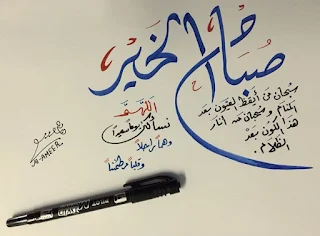 صباح الخير
سبحان من أيقظ العيون بعد
المنام وسبحان من أنار
هذا الكون بعد
الظلام
اللهمَّ
نسألك يوماً سعيداً
وهماً راحلاً
وقلباً مطمئناً
JR-AMEER.